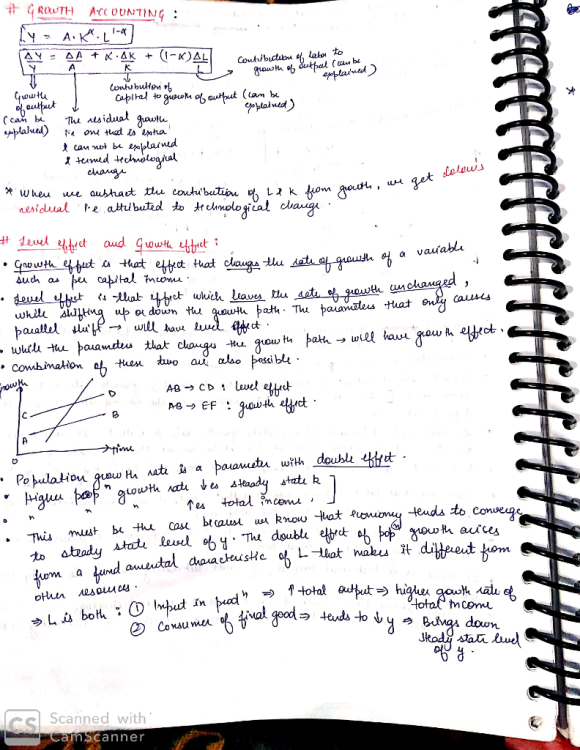 # GROWTH ACCOUNTING :
Y = A·K^α·L^1-α
ΔY/Y = ΔA/A + α·ΔK/K + (1-α)ΔL/L
Contribution of labor to growth of output (can be explained)
Contribution of Capital to growth of output (can be explained)
Growth of output (can be explained)
The residual growth
i.e one that is extra
& can not be explained
& termed technological
change
* When we subtract the contribution of L & K from growth, we get Solow's
residual i.e attributed to technological change.
# Level effect and Growth effect :
• Growth effect is that effect that changes the rate of growth of a variable
such as per capital income.
• Level effect is that effect which leaves the rate of growth unchanged,
while shifting up or down the growth path. The parameters that only causes
parallel shift → will have level effect.
• While the parameters that changes the growth path → will have growth effect.
• Combination of these two are also possible.
growth
C D
A B
0 → time
AB → CD : level effect
AB → EF : growth effect.
• Population growth rate is a parameter with double effect.
• Higher popn growth rate ↓es steady state k
• " " " ↑es total income.
• This must be the case because we know that economy tends to converge
to steady state level of y. The double effect of popn growth arises
from a fundamental characteristic of L that makes it different from
other resources.
⇒ L is both : ① Input in prodn ⇒ ↑ total output ⇒ higher growth rate of total income
② Consumer of final good ⇒ tends to ↓ y ⇒ Brings down steady state level of y.
CS Scanned with
CamScanner